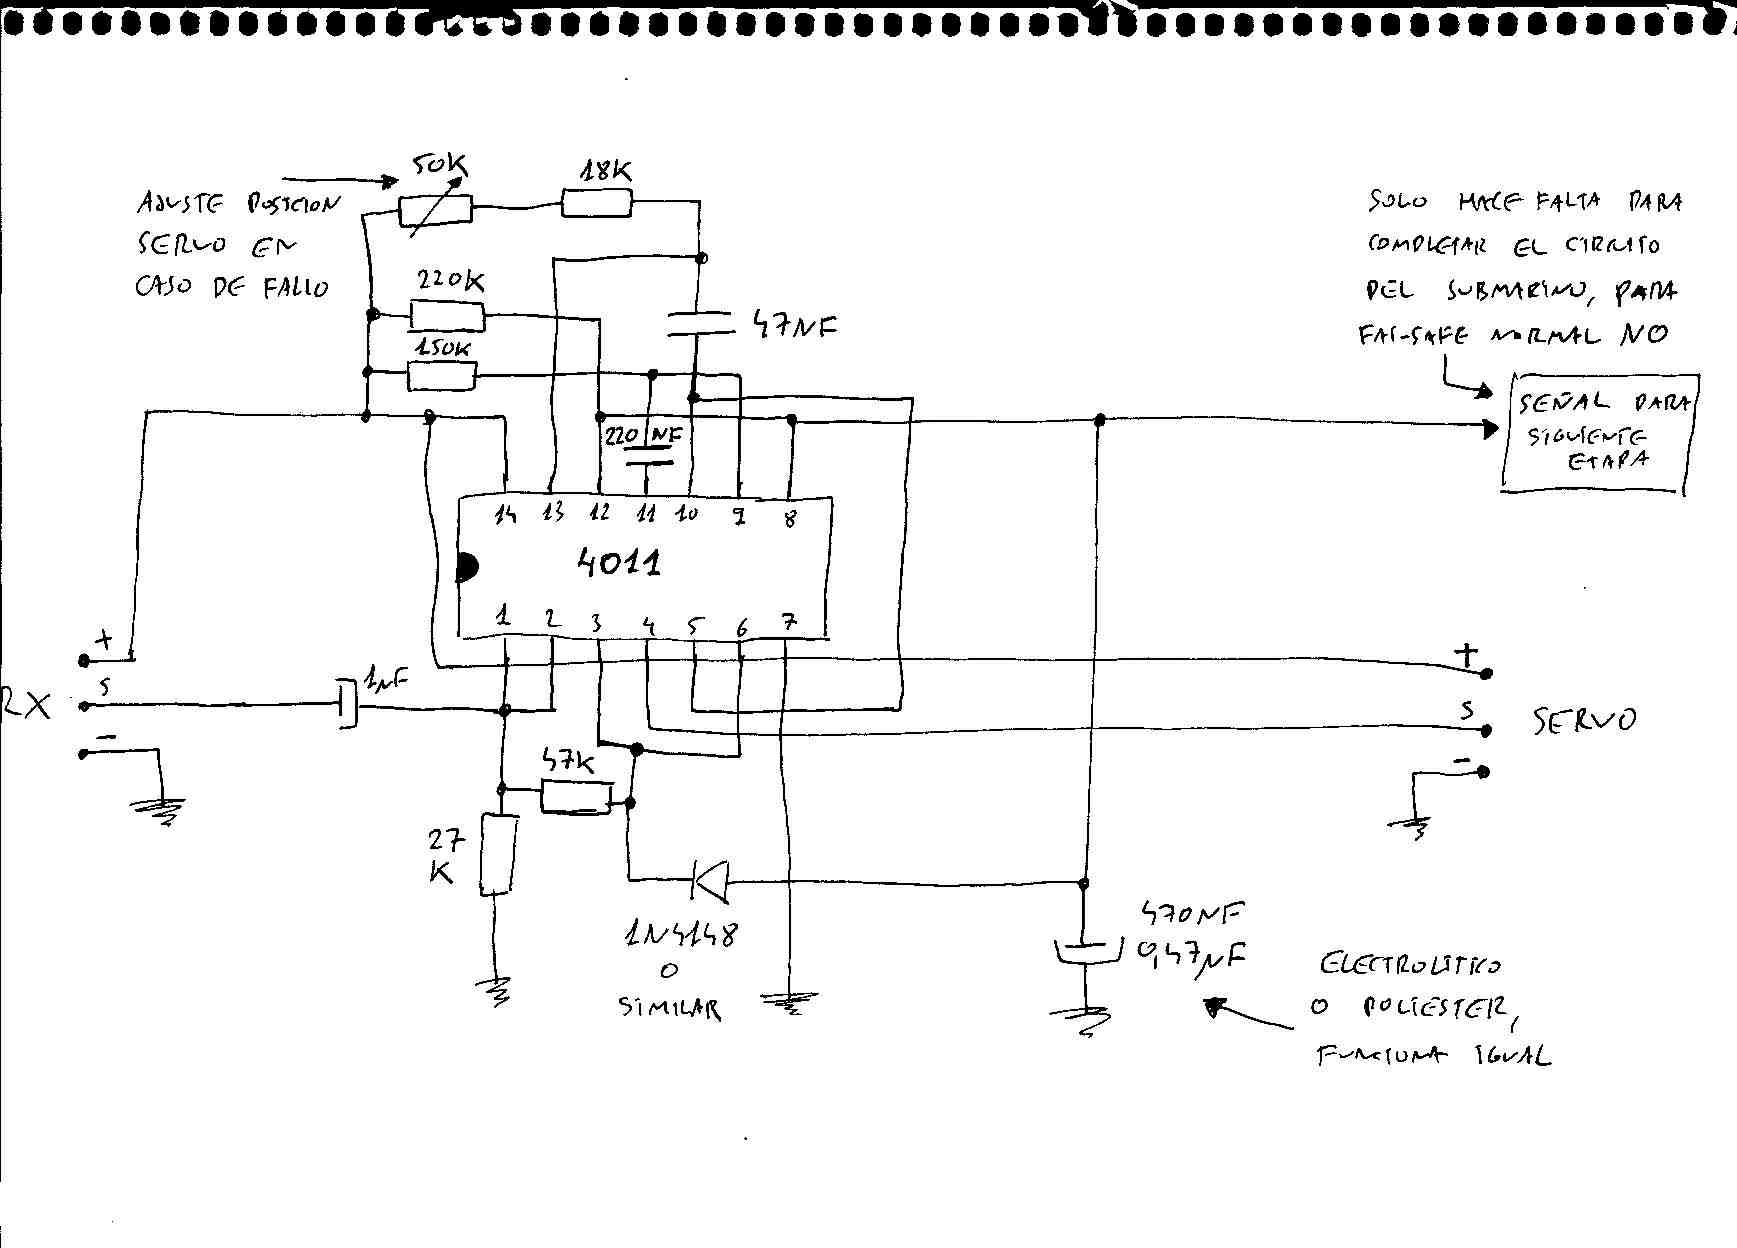 50K
18K
AJUSTE POSICION
SERVO EN
CASO DE FALLO
220K
150K
47NF
220 NF
SOLO HACE FALTA PARA
COMPLETAR EL CIRCUITO
DEL SUBMARINO, PARA
FAI-SAFE NORMAL NO
SEÑAL PARA
SIGUIENTE
ETAPA
14 13 12 11 10 9 8
4011
1 2 3 4 5 6 7
+
S
RX
-
1µF
+
S
SERVO
-
47K
27
K
1N4148
O
SIMILAR
470NF
0,47µF
ELECTROLITICO
O POLIESTER,
FUNCIONA IGUAL